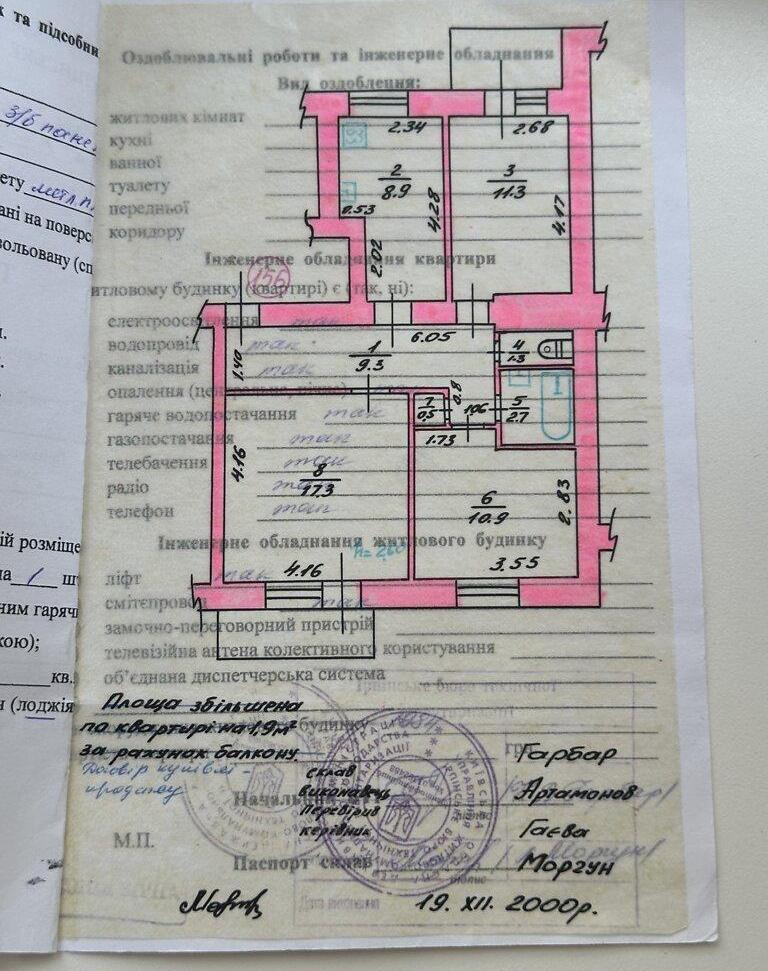 та підсобни
З/б пане
ету метл. п
ані на поверс
зольовану (сп
ій розміще
на 1 шт
ним гаряч
кою);
кв.
(лоджія
Оздоблювальні роботи та інженерне обладнання
Вид оздоблення:
житлових кімнат
кухні
ванної
туалету
передньої
коридору
Інженерне обладнання квартири
итловому будинку (квартирі) є (так, ні):
електроосвітлення так
водопровід так
каналізація так
опалення (центральне, пічне) так
гаряче водопостачання так
газопостачання так
телебачення так
радіо так
телефон так
Інженерне обладнання житлового будинку
ліфт так
смітєпровод так
замочно-переговорний пристрій
телевізійна антена колективного користування
об'єднана диспетчерська система
2.34
2.68
2
8.9
3
11.3
0.53
4.28
4.17
2.02
156
6.05
1
9.3
1.40
4
1.3
0.8
7
0.5
1.06
5
2.7
1.73
4.16
8
17.3
6
10.9
2.83
h=2,60
4.16
3.55
Площа збільшена
по квартирі на 1,9м²
за рахунок балкону
будинку
Договір купівлі-
продажу
склав Гарбар
виконавець Артамонов
перевірив Гаєва
керівник Моргун
Начальник
М.П.
Паспорт склав
Дата виконання
19. XII. 2000р.